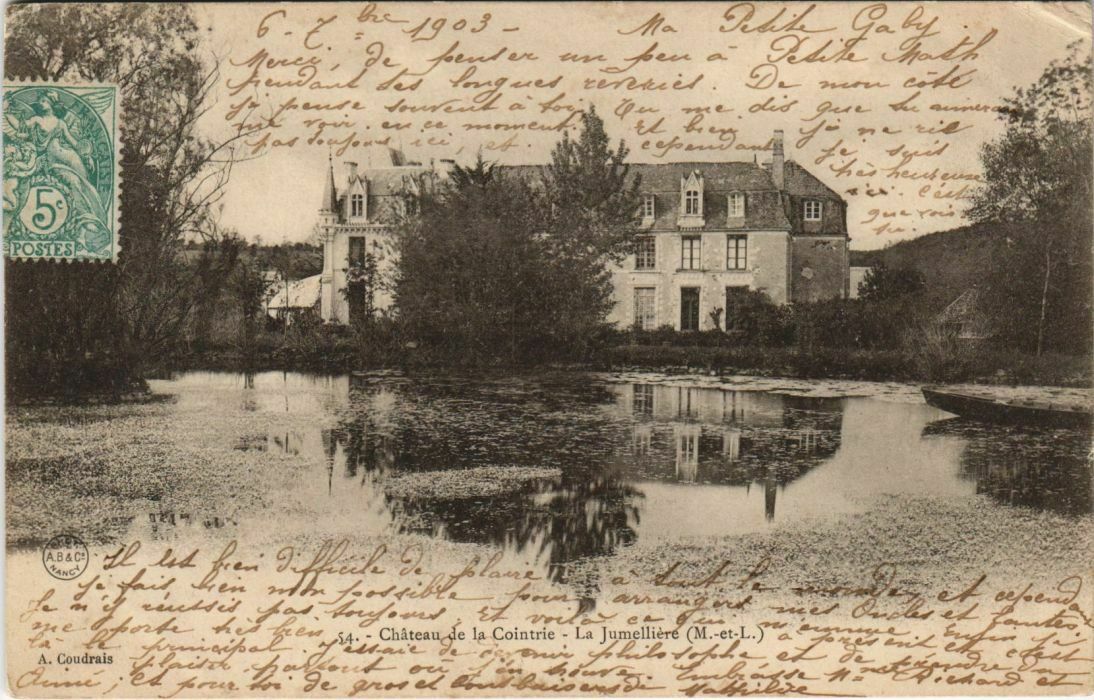 6 - 7bre 1903 - Ma Petite Gaby
Merci, de penser un peu à Petite Math
pendant tes longues rêveries. De mon côté
je pense souvent à toi. Tu me dis que tu aimerais
me voir en ce moment. Et bien je ne ris
pas toujours ici, et cependant je suis
très heureuse
c'est
que
5c
POSTES
Il est bien difficile de plaire à tout le monde, et cependant
je fais bien mon possible pour arranger mes Oncles et tantes
Je n'y réussis pas toujours. Et voilà ce qui m'ennuie. Enfin je
me porte très bien, à présent et c'est
là le principal. J'essaie de devenir philosophe et de prendre du
plaisir partout où j'en trouve. Embrasse Richard et
Aimé; et pour toi de gros et bons baisers de Mathilde
A.B & Cie
NANCY
54. - Château de la Cointrie - La Jumellière (M.-et-L.)
A. Coudrais